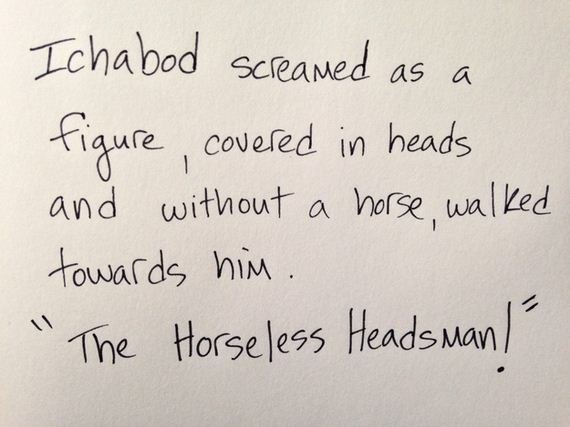 Ichabod screamed as a
figure, covered in heads
and without a horse, walked
towards him.
"The Horseless Headsman!"